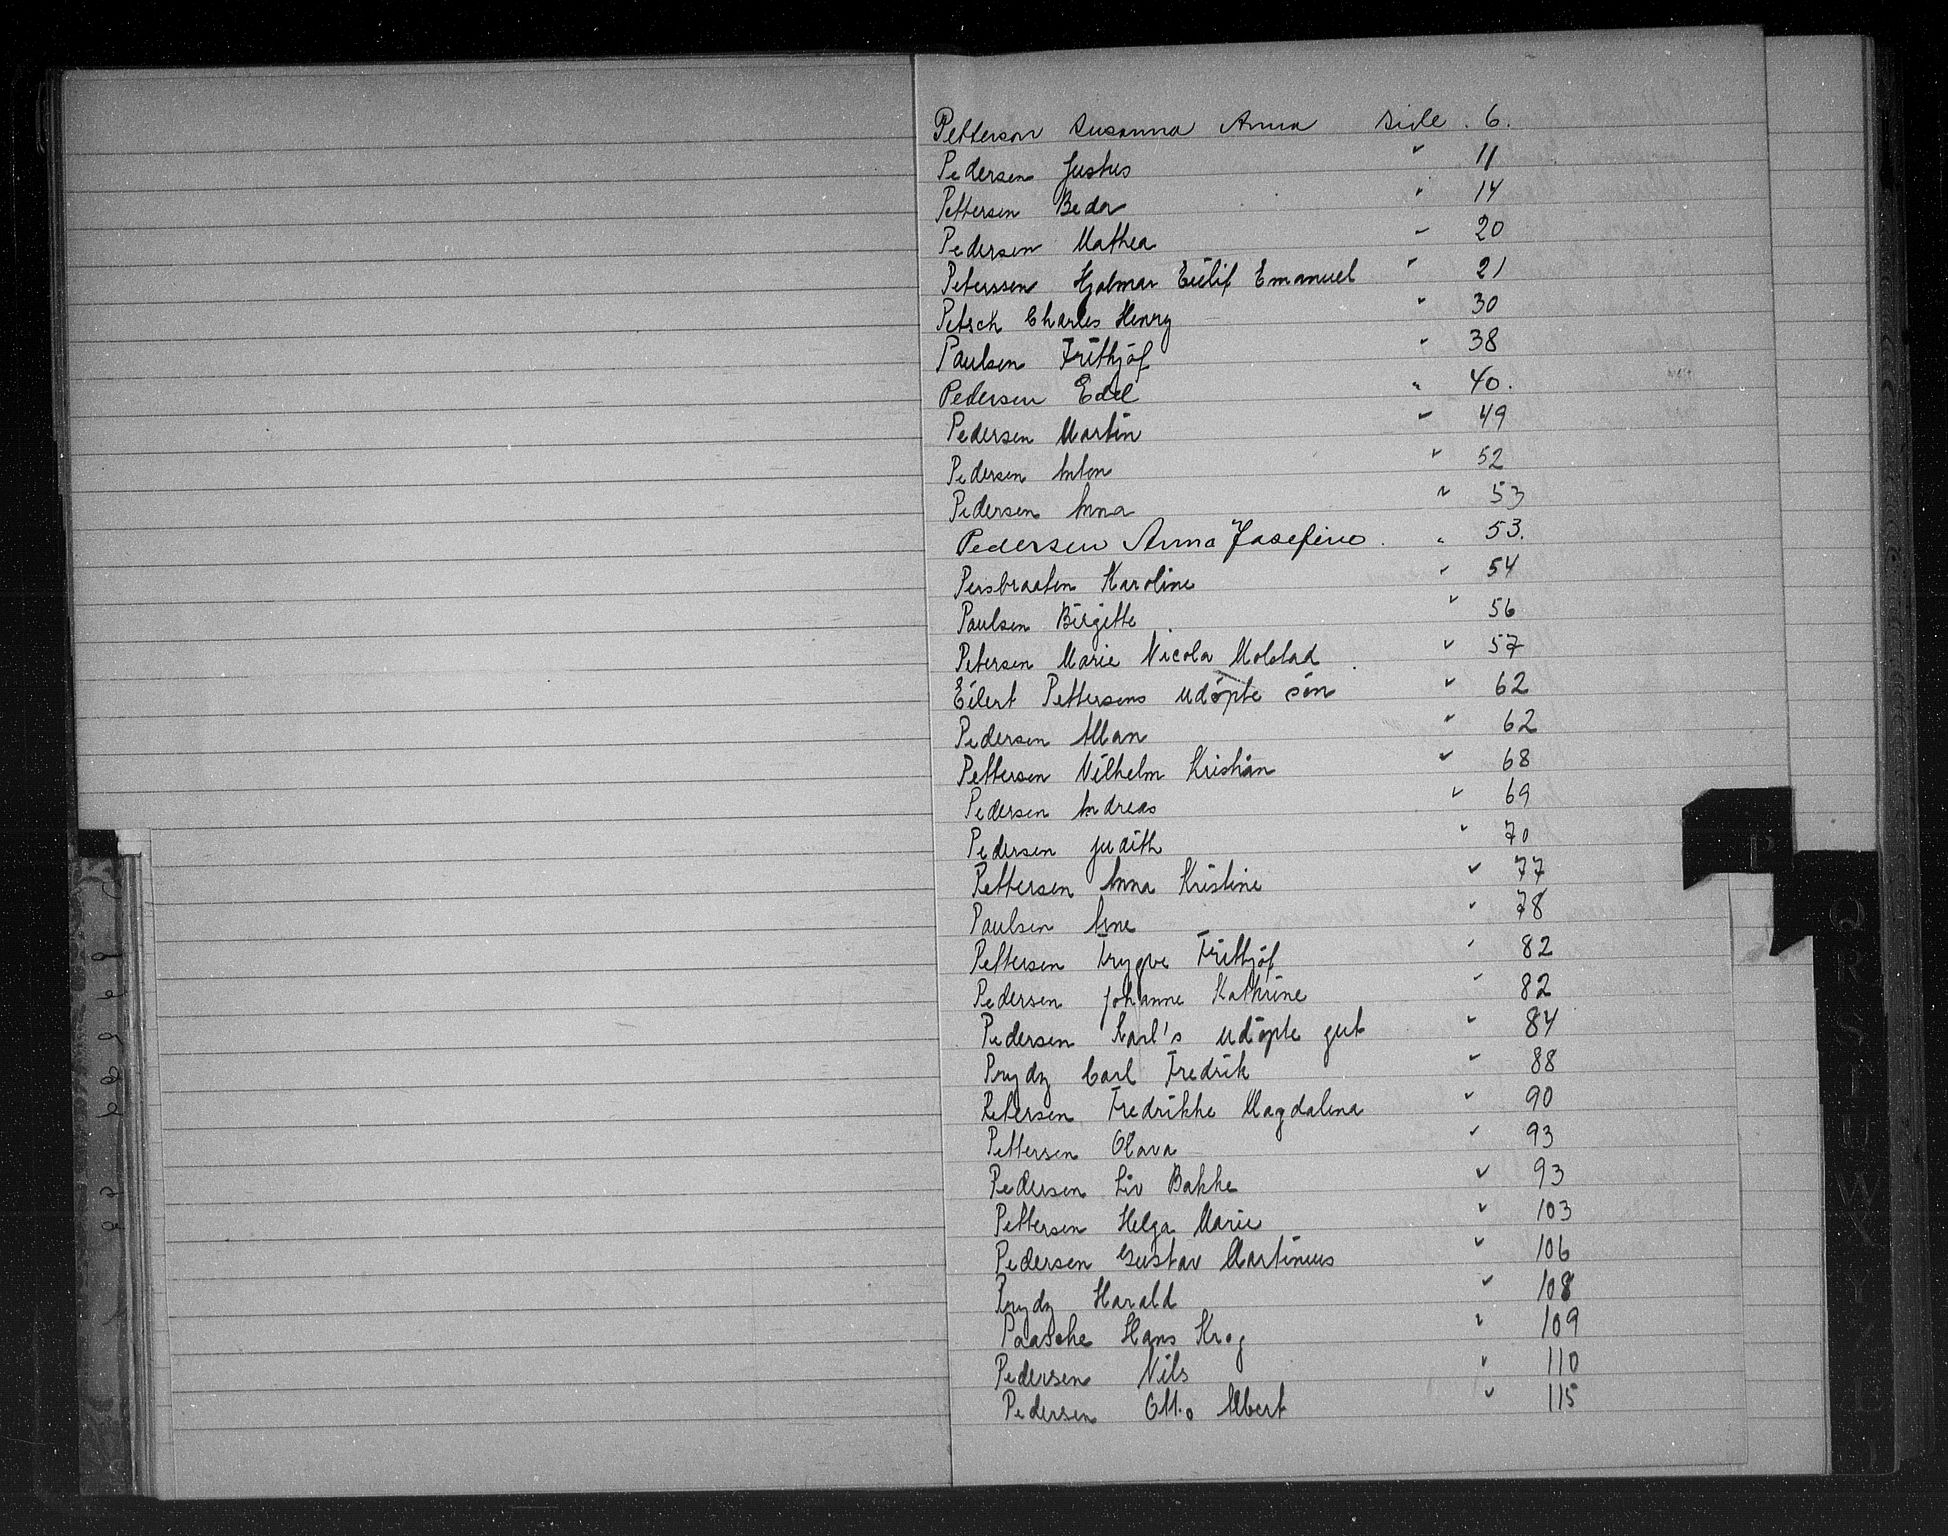 Petterson Susanna Anna side . 6.
Pedersen Justus " 11
Pettersen Beda " 14
Pedersen Mathea " 20
Peterssen Hjalmar Eilif Emanuel " 21
Petsch Charles Henry " 30
Paulsen Frithjof " 38
Pedersen Edel " 40.
Pedersen Martin " 49
Pedersen Anton " 52
Pedersen Anna " 53
Pedersen Anna Josefine . " 53.
Persbraaten Karoline " 54
Paulsen Birgitte " 56
Petersen Marie Nicola Molstad . " 57
Eilert Pettersens udöpte sön " 62
Pedersen Alban " 62
Pettersen Vilhelm Kristian " 68
Pedersen Andreas " 69
Pedersen Judith " 70
Pettersen Anna Kristine " 77
Paulsen Arne " 78
Pettersen Trygve Frithjof " 82
Pedersen Johanne Kathrine " 82
Pedersen Karl's udöpte gut " 84
Prydz Carl Fredrik " 88
Petersen Fredrikke Magdalena " 90
Pettersen Olava " 93
Pedersen Liv Bakke " 93
Pettersen Helga Marie " 103
Pedersen Gustav Martinius " 106
Prydz Harald " 108
Paasche Hans Krog " 109
Pedersen Nils " 110
Pedersen Otto Albert " 115
P
Q
R
S
T
U
W
X
Y